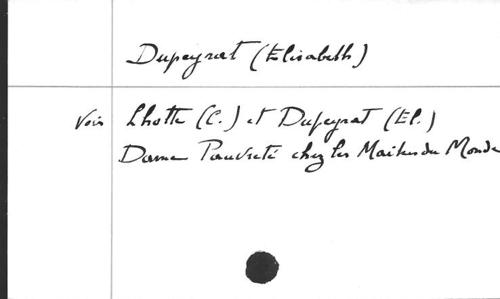 Dupeyrat (Elisabeth)
Voir Lhotte (C.) et Dupeyrat (El.)
Dame Pauvreté chez les Maîtres du Monde